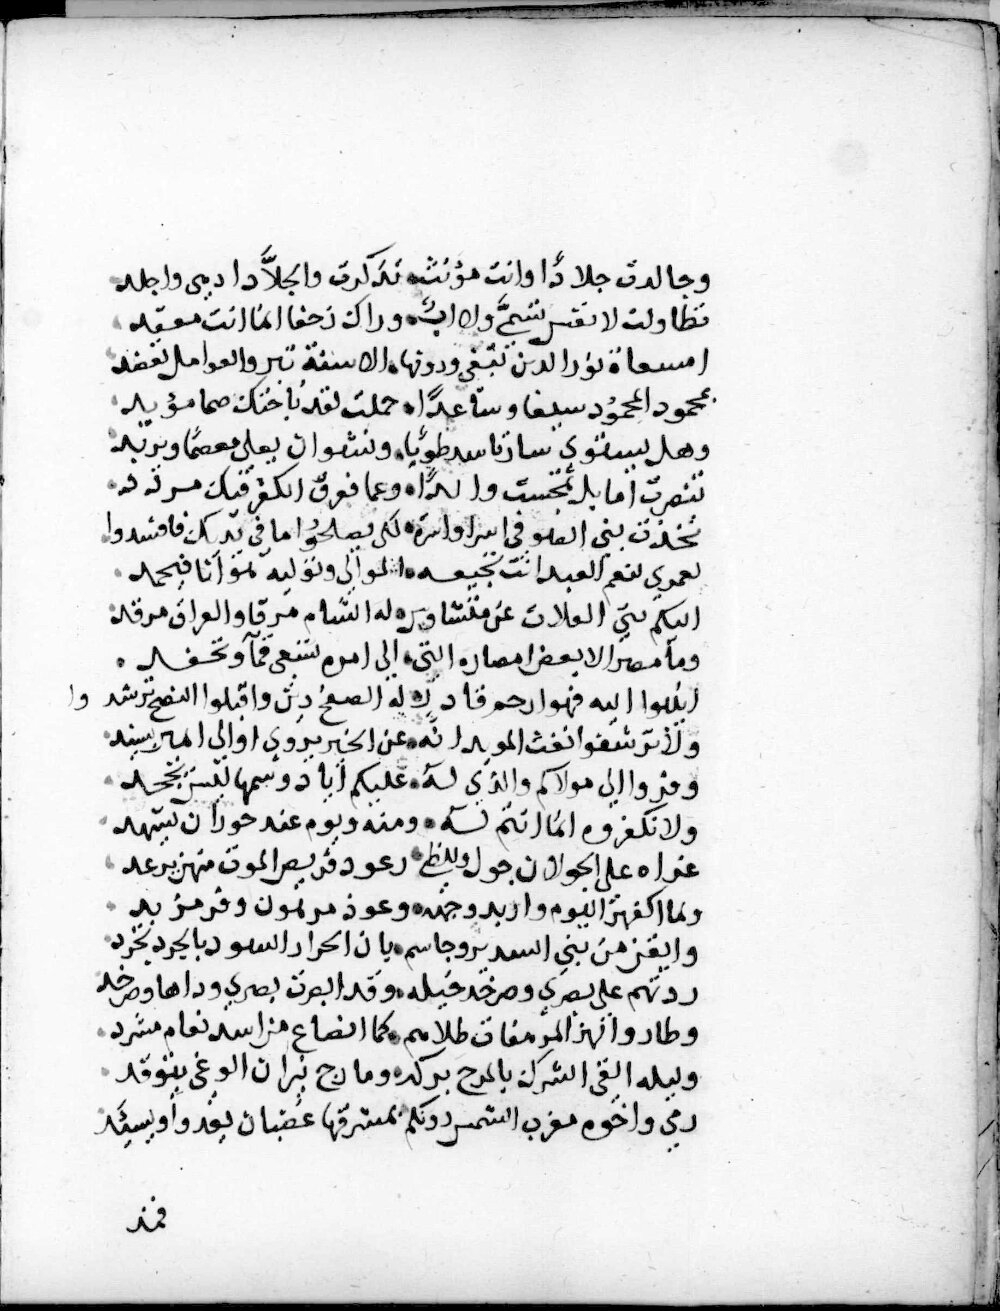 وجالدت جلادًا وانت مؤنث تذكرت والجلاَّد ادهى واجلد
تطاولت لا نفس تسمَّ ولا اب وراك زحفا انما انت مقعد
امسعاة نور الدين تبغي ودونها الاسنة تبر والعوامل تعضد
بمحمود المحمود سيفا وساعدًا حملت لقد ناجتك صما مؤيد
وهل يستوي سار تاسد طويًا ونشوان يعلى معصمًا ويزند
تنصرت اما بل تمجست والدًا وعما فعرق الكفر فيك مردد
تخذت بني الصوفي اسرا واسرة لكي يصلحوا ما في يديك فافسدوا
لعمري لنعم العبد انت تجيعه الموالي وتوليه هوانا فيحمد
اليكم بني العلات عن متشاوس له الشام مرقا والعراق مرقد
وما مصر الا بعض امصاره التي الى امره تسعى قمآ وتحفد
انيبوا اليه فهو ارحم قادر له الصفح دين واقبلوا النصح ترشدوا
ولا ترشفوا نفث المويد انه عن الخير يروي او الى المير يسند
وفروا الى مولاكم والذي له عليكم اياد وسمها ليس يجحد
ولا تكفروه انما انتم له ومنه ويوم عند حوران يشهد
غداه على الجولان جول وللظى رعود فريص الموت منهن يرعد
ولما اكفهر اليوم واربد وجهه وعوذ مرهون وفر مزبد
وايقن من بين السدير وجاسم بان الحرار السود بالجرد تجرد
ردتهم على بصرى وصرخد خيله وقد ابصرت بصرى رداها وصرخد
وطاروا تهز المرهفات طلاهم كما انصاع من اسد نعام مشرد
وليله القى الشرك بالمرج بركه ومارج نيران الوغى يتوقد
رمى واخوه مغرب الشمس دونكم بمشرقها غضبان يعدو ويسئد
فمذ